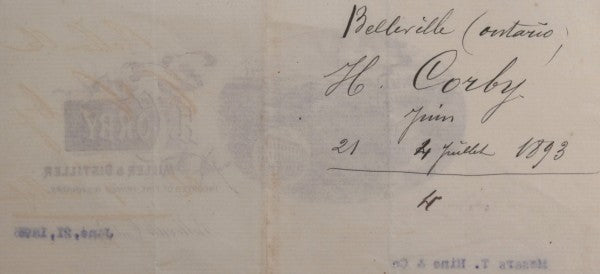 Belleville (Ontario)
H. Corby
Juin
21 4 Juillet 1893
4
CORBY
MILLER & DISTILLER
June, 21, 1893
Messrs T. Hine & Co